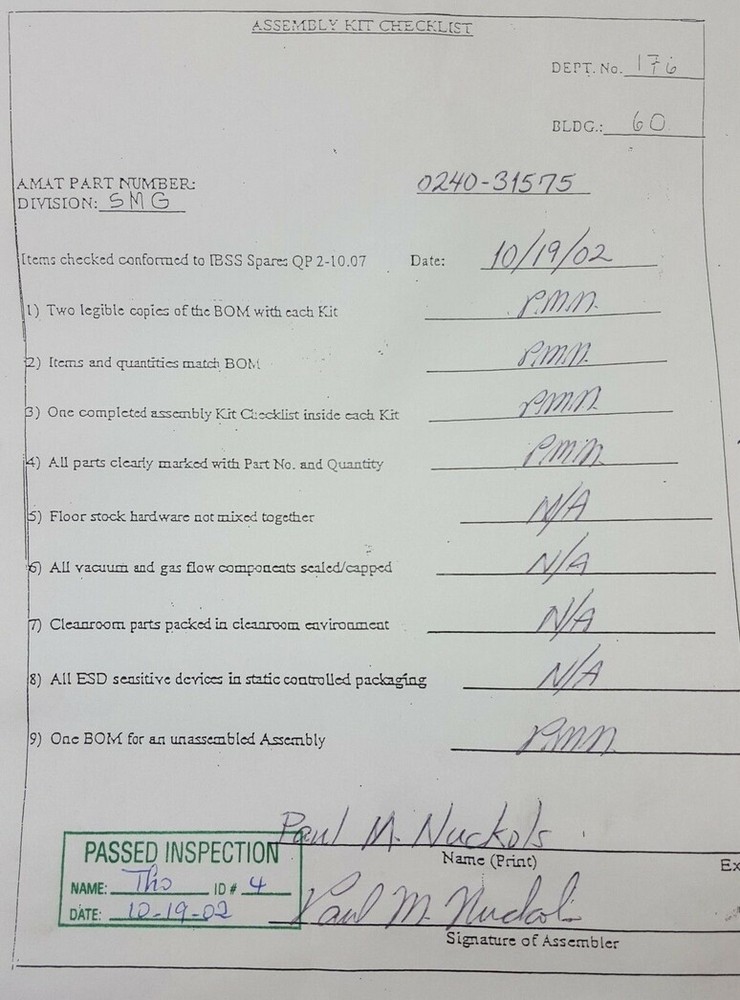 ASSEMBLY KIT CHECKLIST
DEPT. No. 176
BLDG.: 60
AMAT PART NUMBER: 0240-31575
DIVISION: SMG
Items checked conformed to IBSS Spares QP 2-10.07 Date: 10/19/02
1) Two legible copies of the BOM with each Kit P.M.N.
2) Items and quantities match BOM P.M.N.
3) One completed assembly Kit Checklist inside each Kit P.M.N.
4) All parts clearly marked with Part No. and Quantity P.M.N.
5) Floor stock hardware not mixed together N/A
6) All vacuum and gas flow components sealed/capped N/A
7) Cleanroom parts packed in cleanroom environment N/A
8) All ESD sensitive devices in static controlled packaging N/A
9) One BOM for an unassembled Assembly P.M.N.
Paul M. Nuckols
Name (Print) Ex
PASSED INSPECTION
NAME: Tho ID # 4
DATE: 10-19-02
Paul M. Nuckols
Signature of Assembler